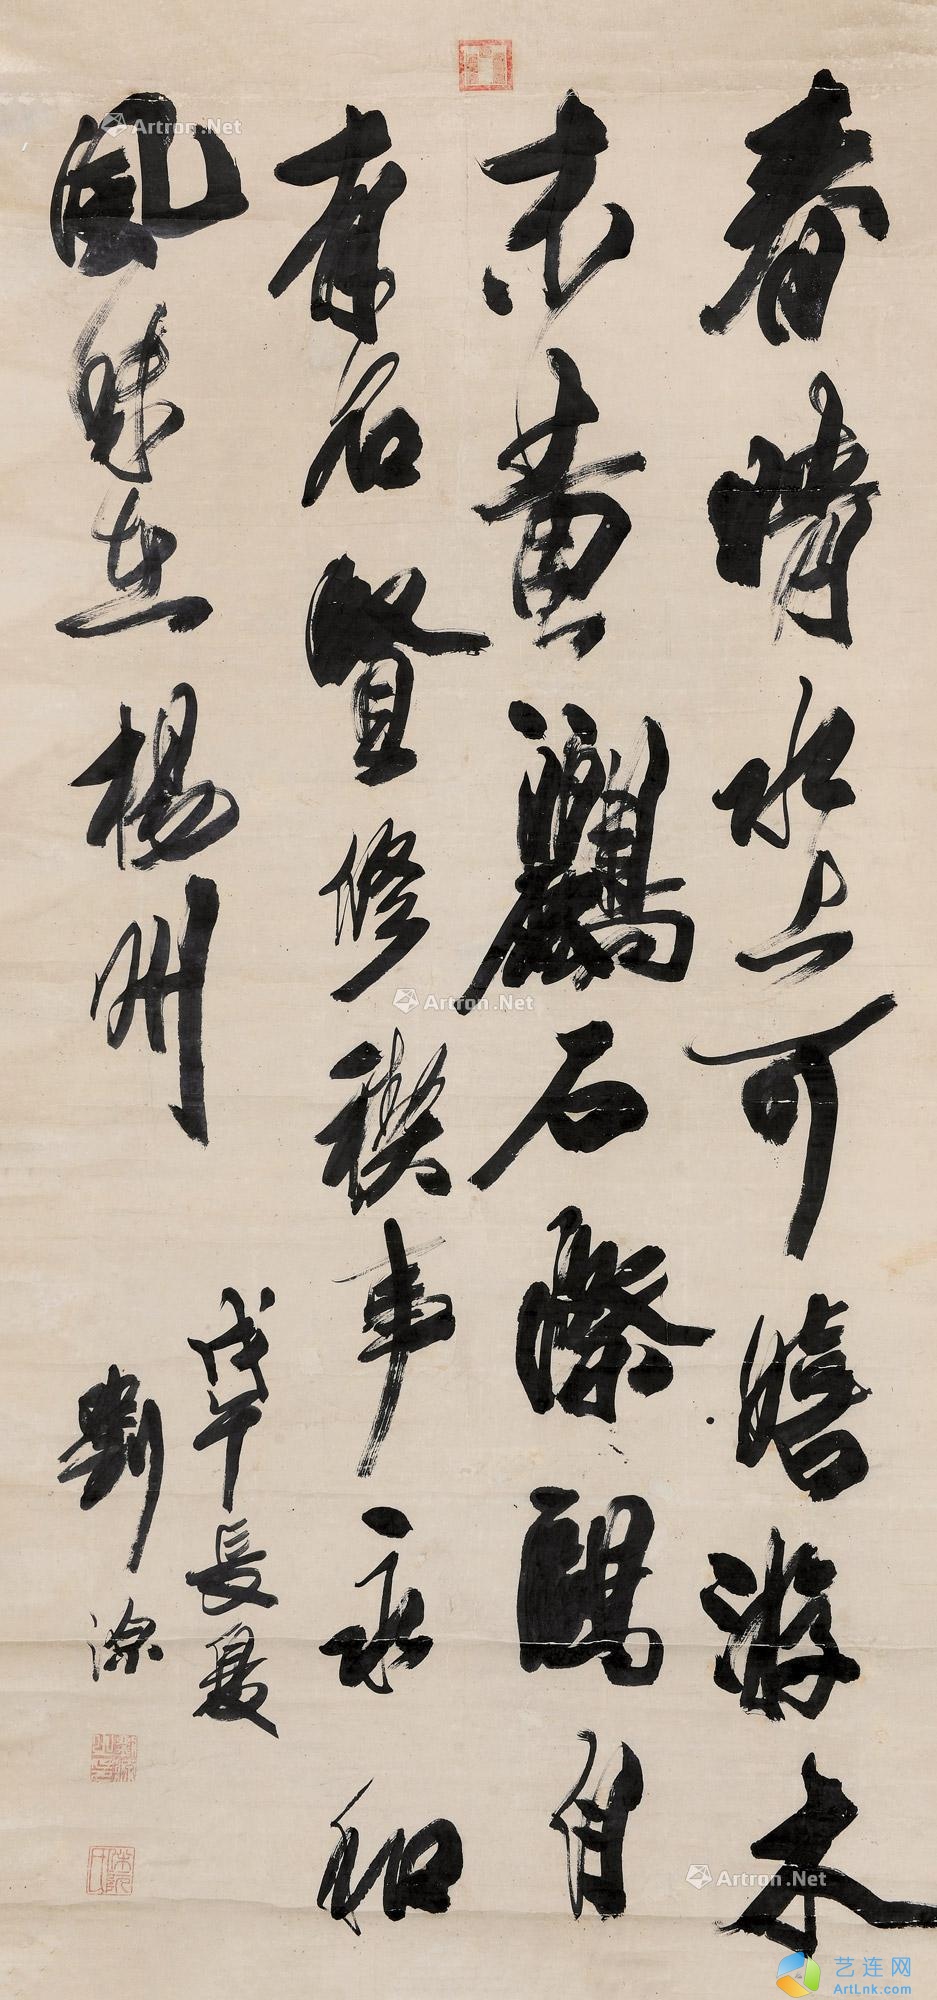 春晴水上可嬉游木
末黄鸝石際鷗自
有名賢修禊事永和
風味在楊州
戊午長夏
劉源
Artron.Net
Artron.Net
Artron.Net
艺连网
ArtLnk.com